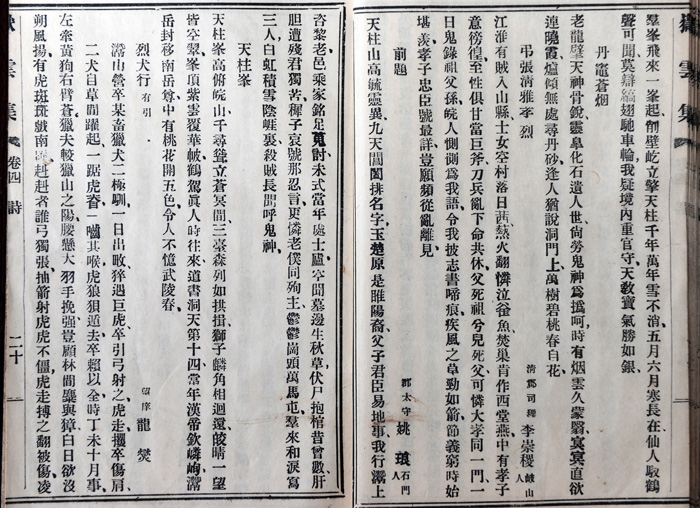 羣峯飛來一峯起削壁屹立擎天柱千年萬年雪不消五月六月寒長在仙人馭鶴
聲可聞莫辯縞翅馳車輪我疑境內重官守天敎寶氣勝如銀
丹竈蒼烟
老龍擘天神骨銳靈阜化石遺人世尙勞鬼神爲撝呵時有烟雲久蒙翳冥冥直欲
連曉霞爐傾無處尋丹砂逢人猶說洞門上萬樹碧桃春白花
弔張清雅孝烈 淸郡司理李崇稷岐山人
江淮有賊入山縣士女空村落日茜爇火翻憐泣釜魚焚巢肯作西堂燕中有孝子
意徬徨至性俱甘當巨斧刀兵亂下命共休父死祖兮兒死父可憐大孝同一門一
日鬼錄祖父孫皖人惻惻爲我語令我披志書啼痕疾風之草勁如箭節義窮時始
堪羨孝子忠臣號最詳豈願頻從亂離見
前題 郡太守姚琅石門人
天柱山高毓靈異九天閶闔排名字玉楚原是睢陽裔父子君臣易地事我行灊上
咨黎老邑乘家銘足蒐討未弍當年處士廬空問墓邊生秋草伏尸抱棺昔曾數肝
膽遭殘君獨苦穉子哀號那忍言更憐老僕同殉主鬱鬱崗頭萬馬屯羣來和淚寫
三人白虹積雪陰崕裏殺賊長開呼鬼神
天柱峯
天柱峯高俯皖山千尋聳立蒼冥間三臺森列如拱揖獅子麟角相迴還皎晴一望
皆空翠峯頂紫雲覆華帔鶴駕眞人時往來道書洞天第十四當年漢帝欽嶙峋灊
岳封移南岳尊中有桃花開五色令人不憶武陵春
烈犬行有引 望庠龍燮
灊山營卒某畜獵犬二極馴一日出畋猝遇巨虎卒引弓射之虎走攫卒傷肩
二犬自草間躍起一踞虎脊一嚙其喉虎狼狽逭去卒賴以全時丁未十月事
左牽黃狗右臂蒼獵夫較獵山之陽腰懸大羽手挽强豈顧林間麋與獐白日欲沒
朔風揚有虎斑斑巤南赳赳者誰弓獨張抽箭射虎虎不僵虎走搏之翻被傷凌
嶽雲集 卷四 詩 二十